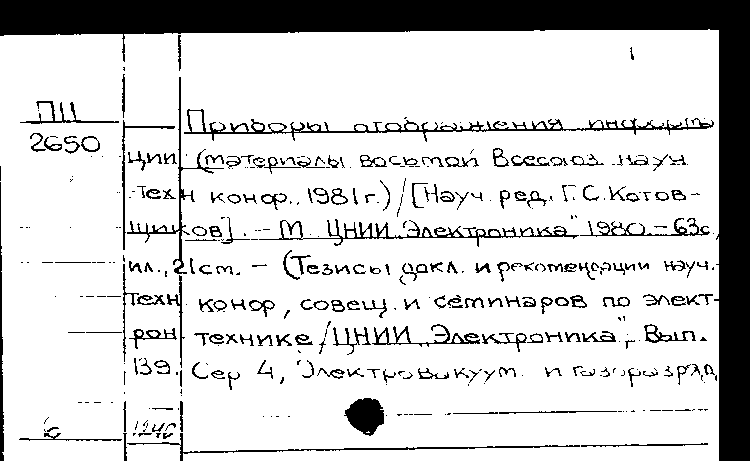 1
ПII
2650
Приборы отображения информа
ции (материалы восьмой Всесоюз. науч
техн конф. 1981г.)/[Науч. ред. Г.С. Котов-
щиков]. - М ЦНИИ „Электроника" 1980. - 63с,
ил., 21см. - (Тезисы докл. и рекомендации науч.-
техн конф, совещ. и семинаров по элект-
рон технике/ЦНИИ „Электроника", Вып.
139. Сер 4, Электровакуум. и газоразряд